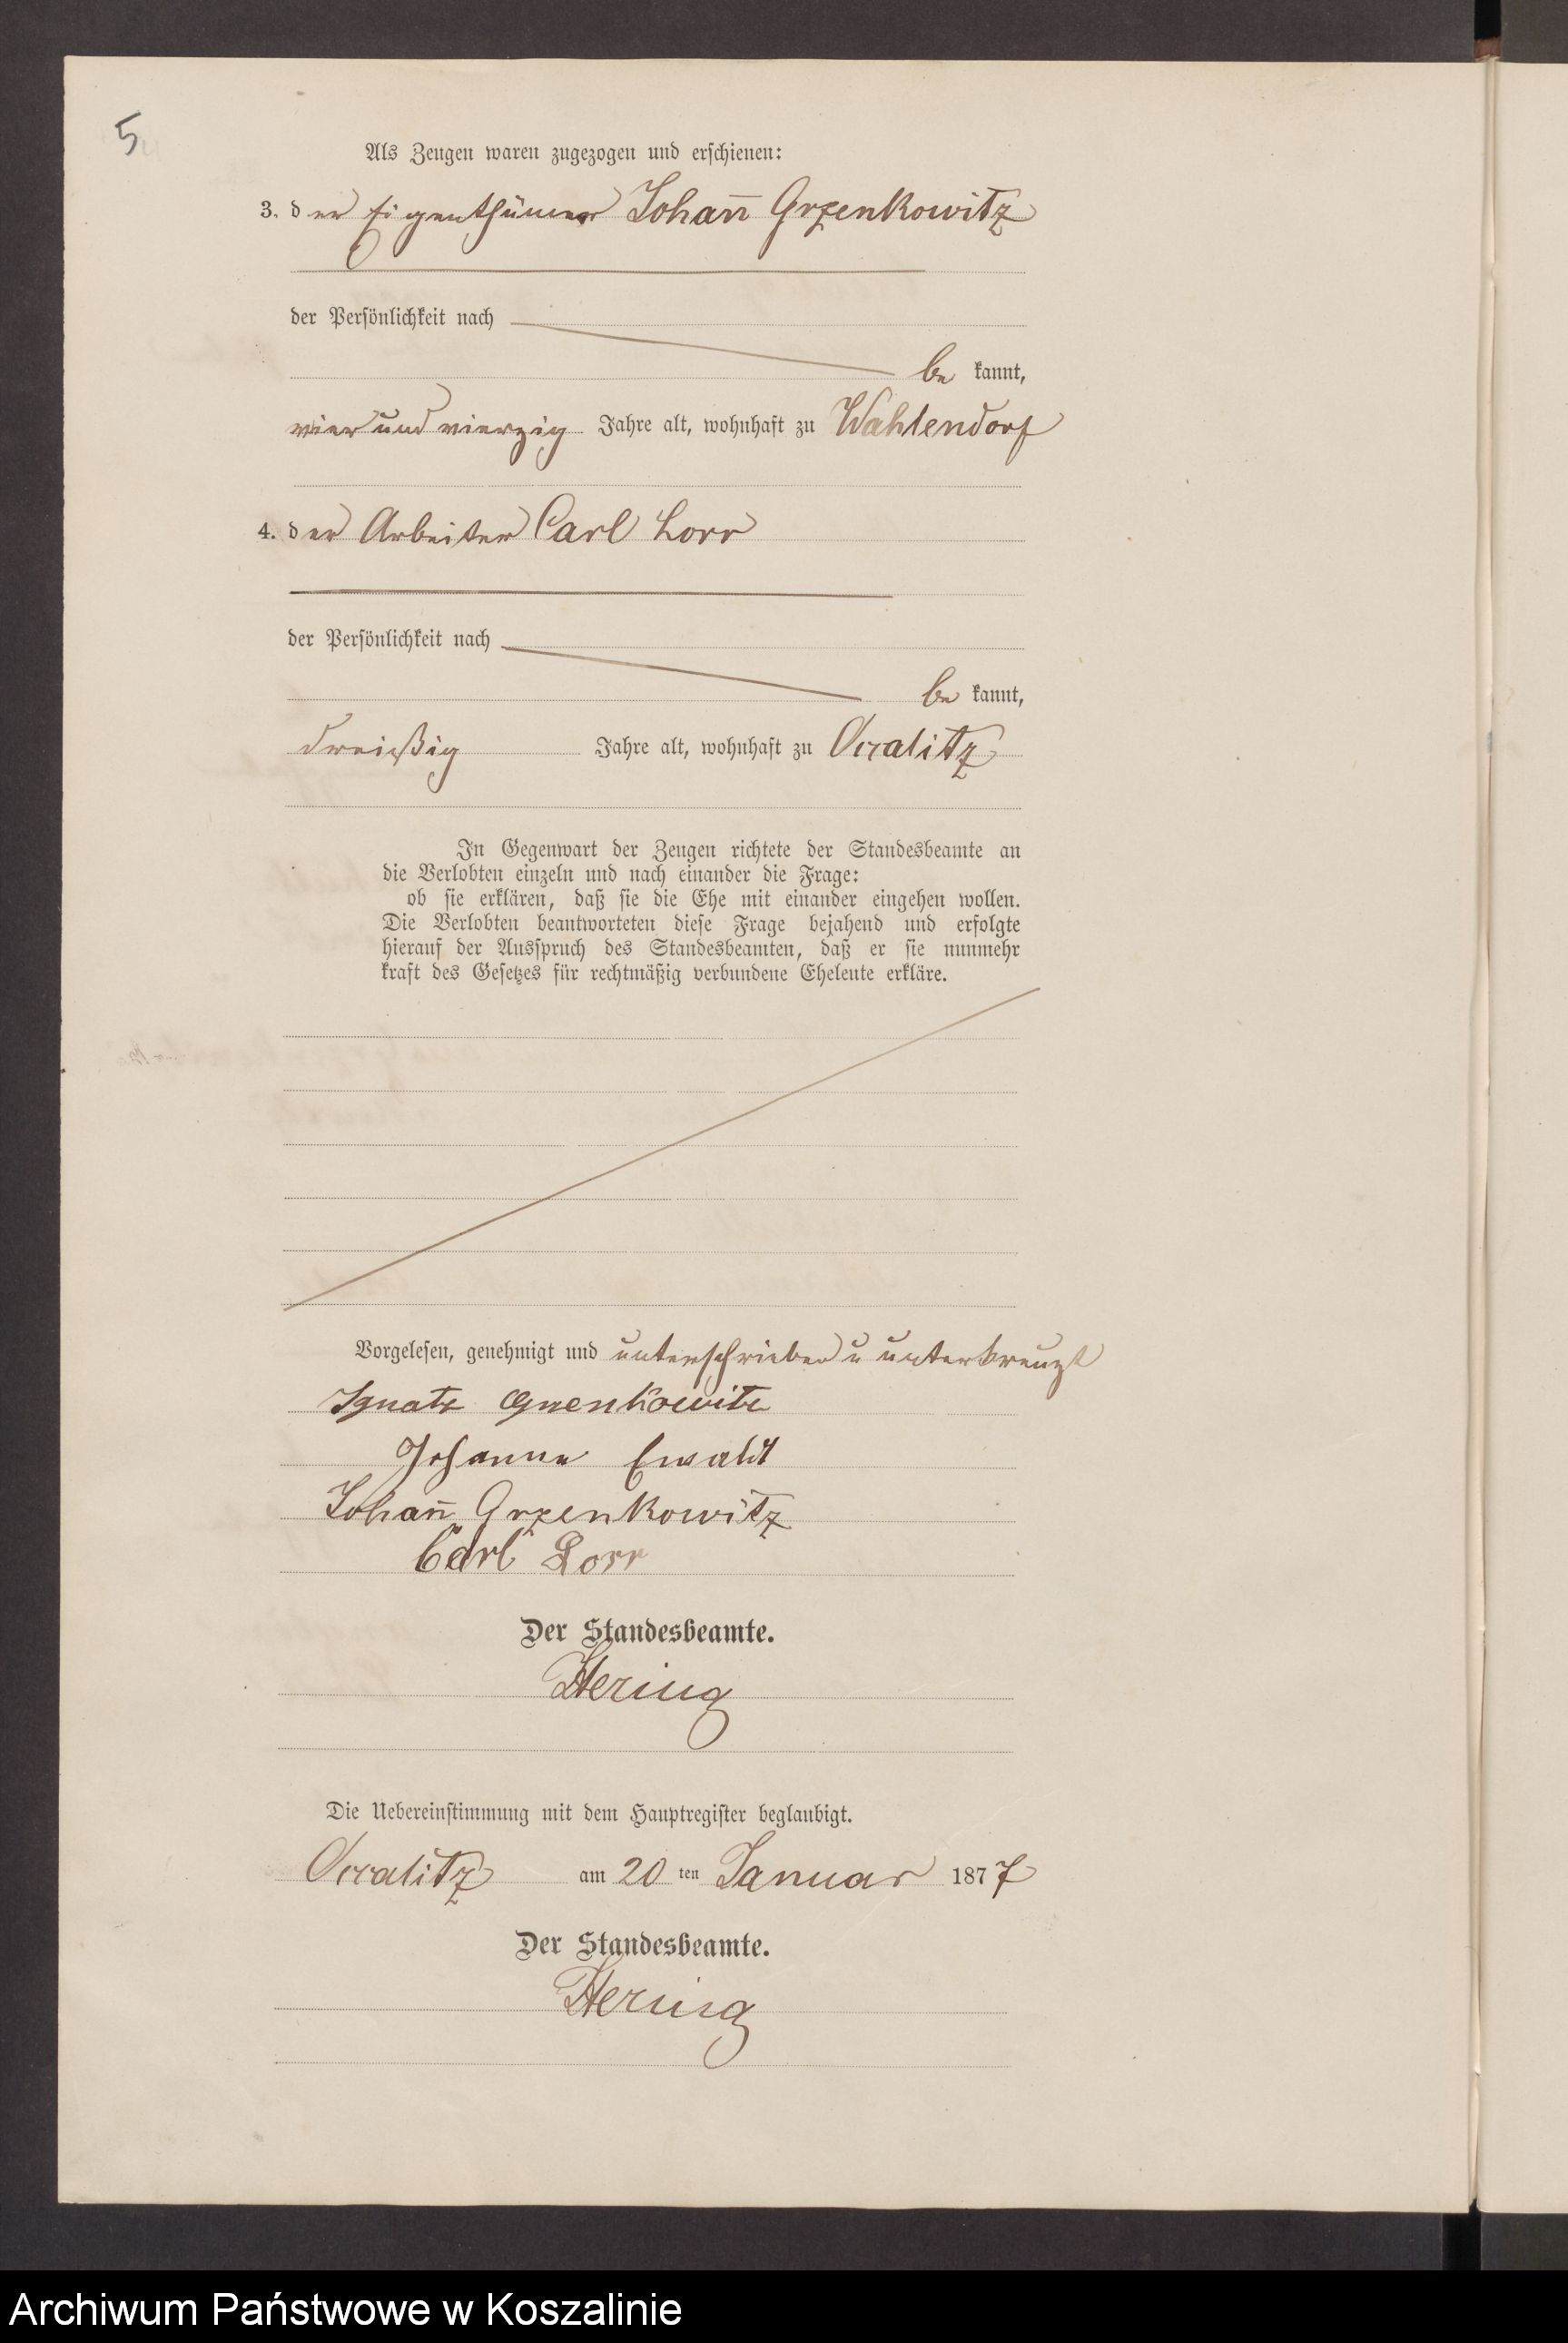 5
Als Zeugen waren zugezogen und erschienen:
3. der Eigenthümer Johan̄ Grzenkowitz
der Persönlichkeit nach
be kannt,
vier und vierzig Jahre alt, wohnhaft zu Wahlendorf
4. der Arbeiter Carl Lorr
der Persönlichkeit nach
be kannt,
dreißig Jahre alt, wohnhaft zu Occalitz
In Gegenwart der Zeugen richtete der Standesbeamte an
die Verlobten einzeln und nach einander die Frage:
ob sie erklären, daß sie die Ehe mit einander eingehen wollen.
Die Verlobten beantworteten diese Frage bejahend und erfolgte
hierauf der Ausspruch des Standesbeamten, daß er sie nunmehr
kraft des Gesetzes für rechtmäßig verbundene Eheleute erkläre.
Vorgelesen, genehmigt und unterschrieben u unterkreuzt
Ignatz Grzenkowitz
Johanna Ewaldt
Johan̄ Grzenkowitz
Carl Lorr
Der Standesbeamte.
Hering
Die Uebereinstimmung mit dem Hauptregister beglaubigt.
Occalitz am 20 ten Januar 1877
Der Standesbeamte.
Hering
Archiwum Państwowe w Koszalinie